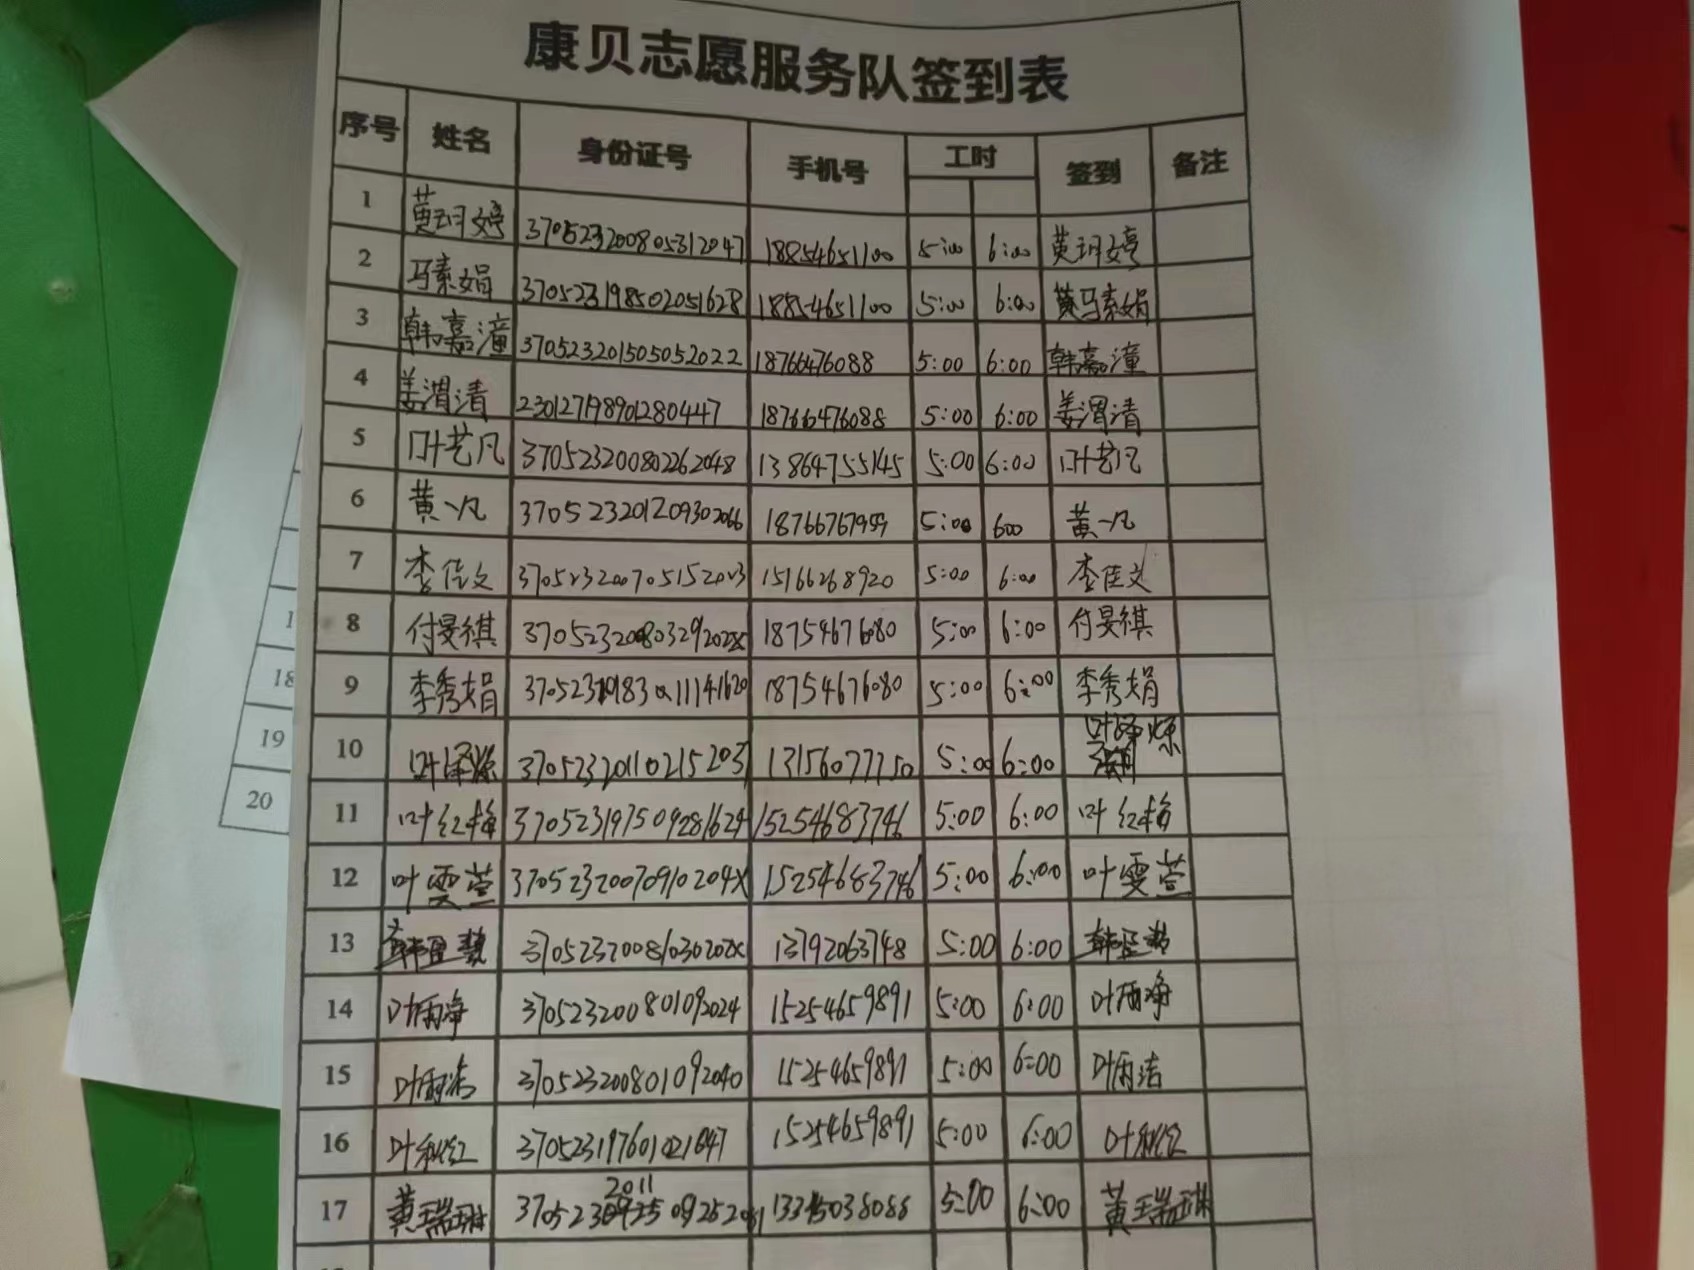 康贝志愿服务队签到表
序号 姓名 身份证号 手机号 工时 签到 备注
1 黄玥婷 370523200805312047 18854651100 5:00 6:00 黄玥婷
2 马素娟 370523198502051628 18854651100 5:00 6:00 马素娟
3 韩嘉潼 370523201505052022 18766476088 5:00 6:00 韩嘉潼
4 姜渭清 230127198901280447 18766476088 5:00 6:00 姜渭清
5 叶艺凡 370523200802262048 13864755145 5:00 6:00 叶艺凡
6 黄一凡 370523201209302066 18766767959 5:00 600 黄一凡
7 李佳文 370523200705152023 15166268920 5:00 6:00 李佳文
8 付旻祺 18754676080 5:00 6:00 付旻祺
9 李秀娟 18754676080 5:00 6:00 李秀娟
10 370523201102152031 13156077750 5:00 6:00
11 叶红梅 370523197509281624 15254683746 5:00 6:00 叶红梅
12 叶雯萱 37052320070910204X 15254683746 5:00 6:00 叶雯萱
13 37052320081030202X 13792063748 5:00 6:00
14 叶雨净 370523200801092024 15254659891 5:00 6:00 叶雨净
15 叶雨洁 370523200801092040 15254659891 5:00 6:00 叶雨洁
16 15254659891 5:00 6:00
17 黄瑞琳 5:00 6:00 黄瑞琳
18
19
20